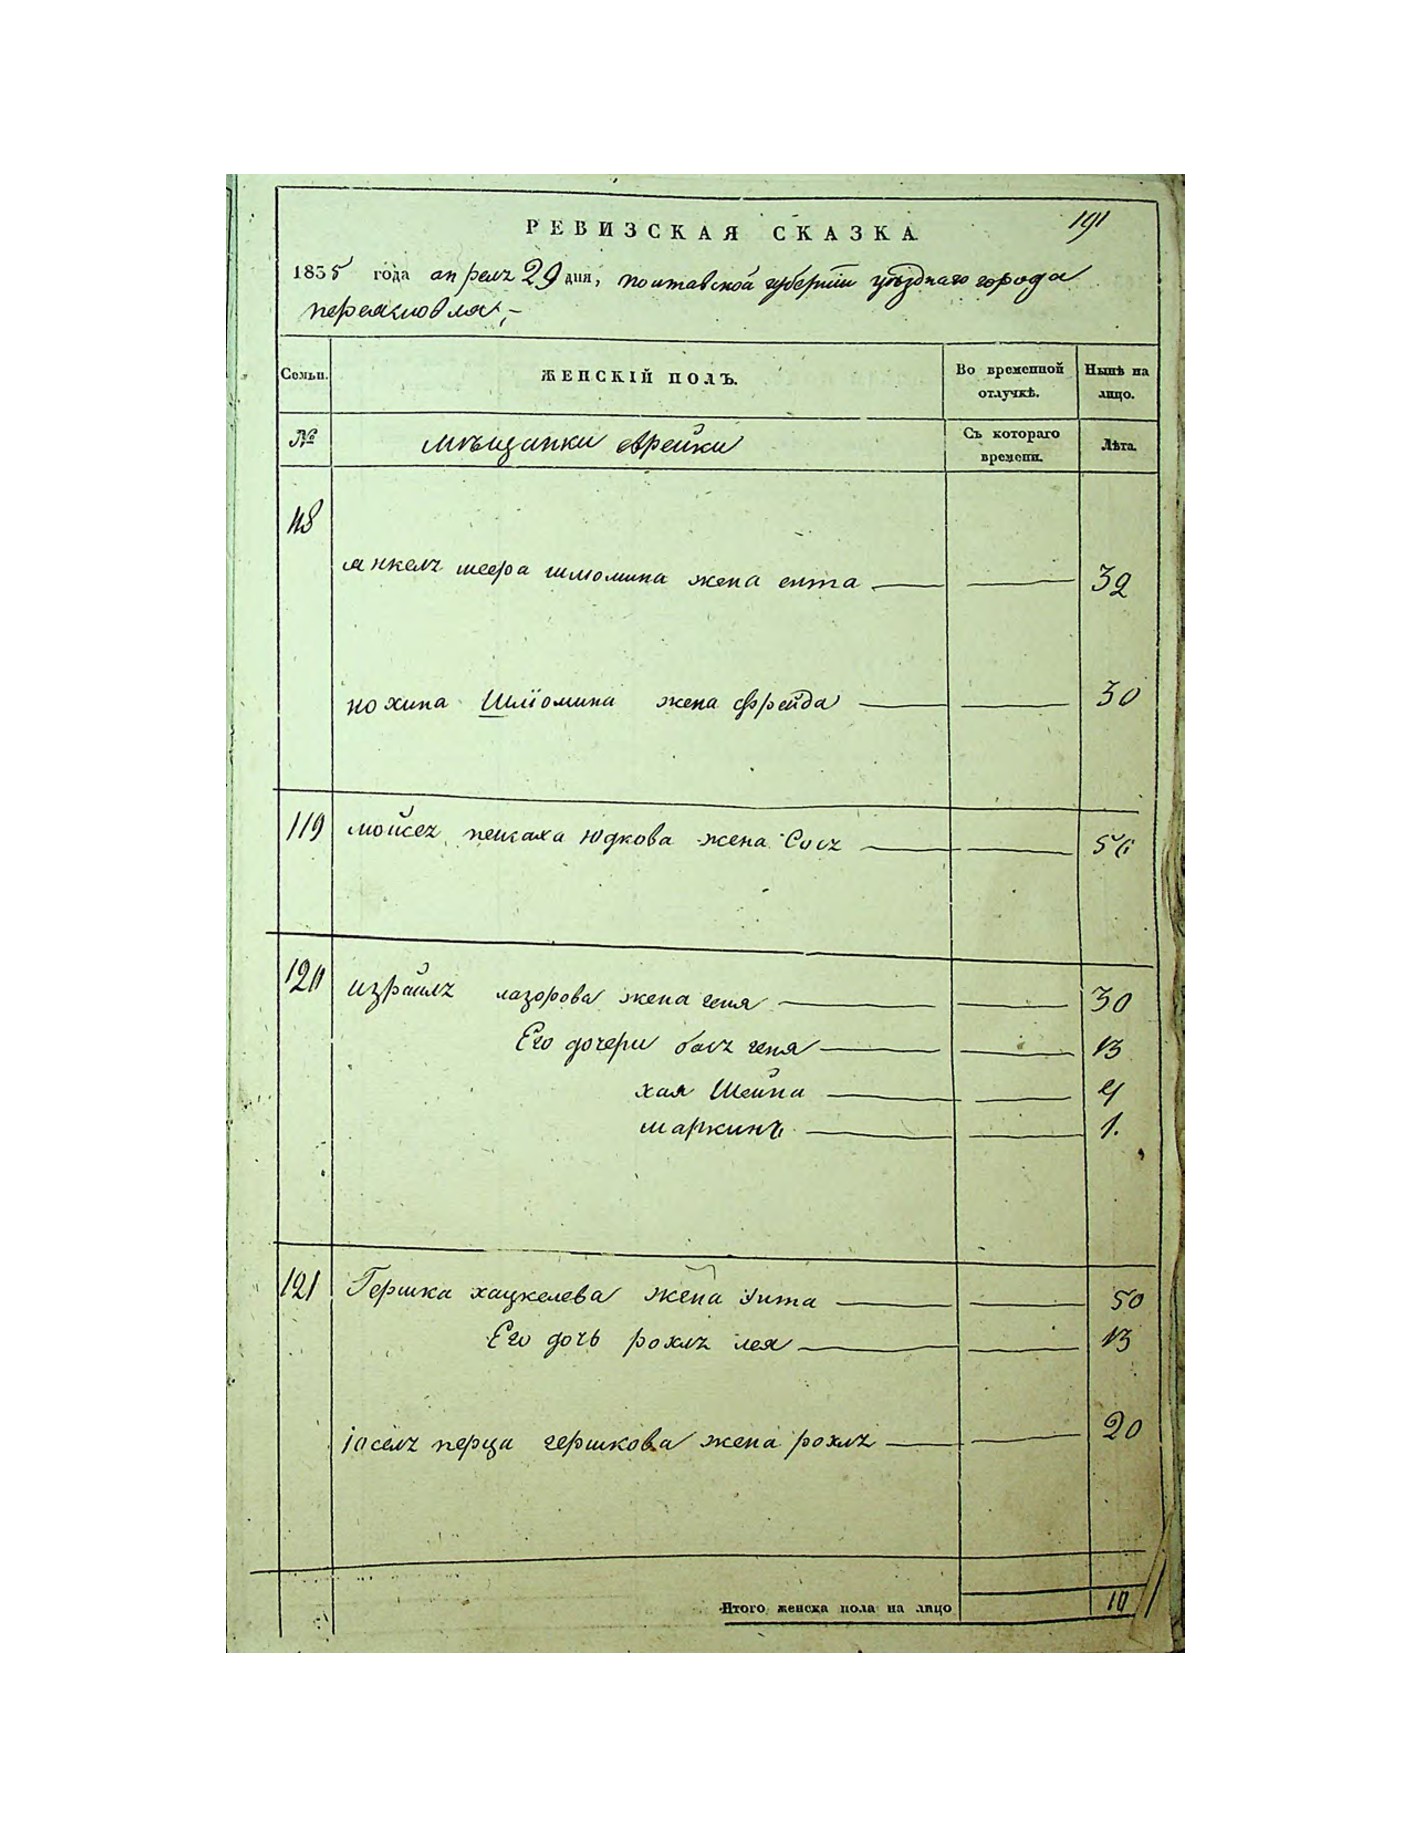 191
РЕВИЗСКАЯ СКАЗКА
1835 года апрелъ 29 дня, полтавской губернии уѣзднаго города
переяславля
Семьи.
ЖЕНСКІЙ ПОЛЪ.
Во временной отлучкѣ.
Ныне на лицо.
№
мѣщанки еврейки
Съ котораго времени.
Лѣта.
118
янкелъ меера шлюомина жена ента 32
нохима Шлїомина жена фрейда 30
119 мойсеъ песаха юдкова жена Сосъ 56
120 израйлъ лазорова жена геня 30
Его дочери басъ геня 13
хая Шейна 4
1.
121 Гершка хацкелева жена Унта 50
Его дочь рохлъ лея 13
іоселъ перца гершкова жена рохлъ 20
Итого женска пола на лицо 10